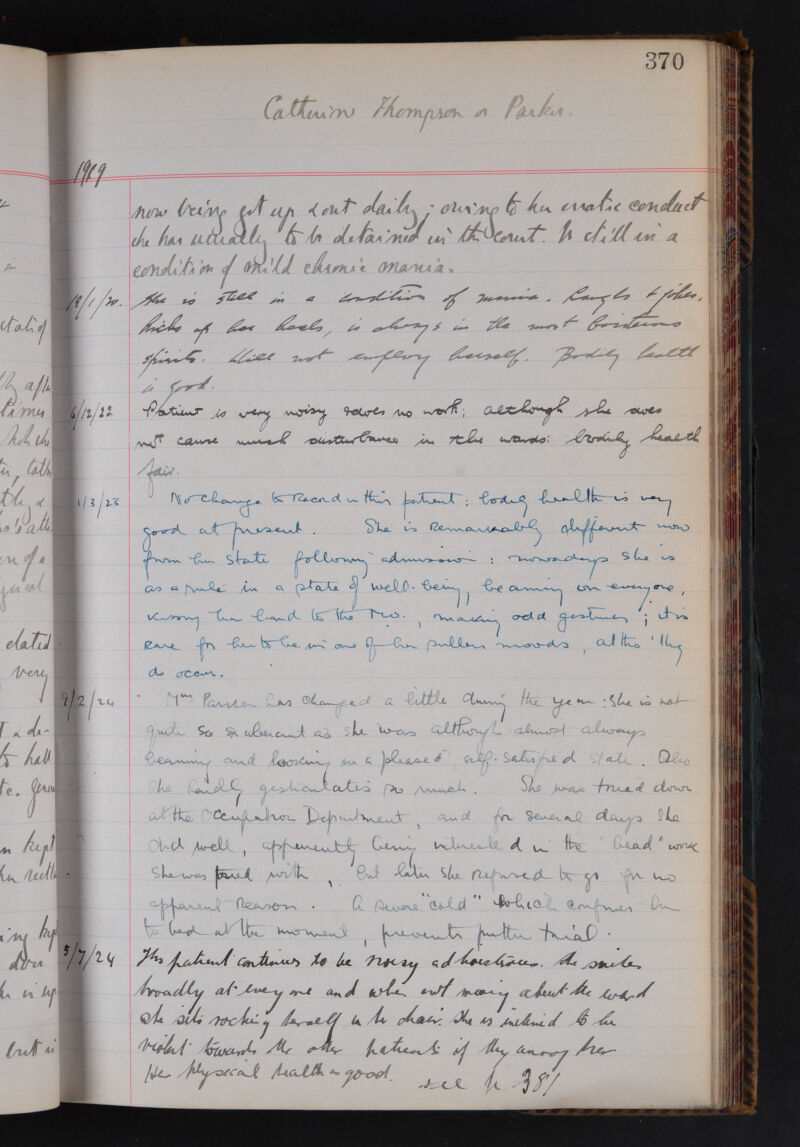 370
Catherine Thompson or Parker.
1919
now being got up & out daily; owing to her erratic conduct
she has usually to be detained in the court. Is still in a
condition of mild chronic mania.
18/1/20. She is still in a condition of mania. Laughs & jokes,
kicks up her heels, is always in the most boisterous
spirits. Will not employ herself. Bodily health
is good.
6/12/22 Patient is very noisy & does no work; although she does
not cause much disturbance in the wards: bodily health
fair.
1/3/23 No change to record in this patient: bodily health is very
good at present. She is remarkably different now
from her state following admission: nowadays she is
as a rule in a state of well-being, beaming on everyone,
kissing her hand to the M.O., making odd gestures; it is
rare for her to be in one of her sullen moods, altho' they
do occur.
9/2/24 Mrs Parker has changed a little during the year: She is not
quite so exuberant as she was although almost always
beaming and looking in a pleased, self-satisfied state. Also
she hardly gesticulates so much. She was tried down
at the Occupation Department, and for several days she
did well, apparently being interested in the "bead" work
she was tried with, but later she refused to go for no
apparent reason. A severe "cold" which confines her
to bed at the moment, prevents further trial.
5/7/24 This patient continues to be noisy and boisterous. She smiles
broadly at every one and when not moving about the ward
she sits rocking herself in her chair. She is inclined to be
violent towards the other patients if they annoy her
Her physical health is good. see p 381